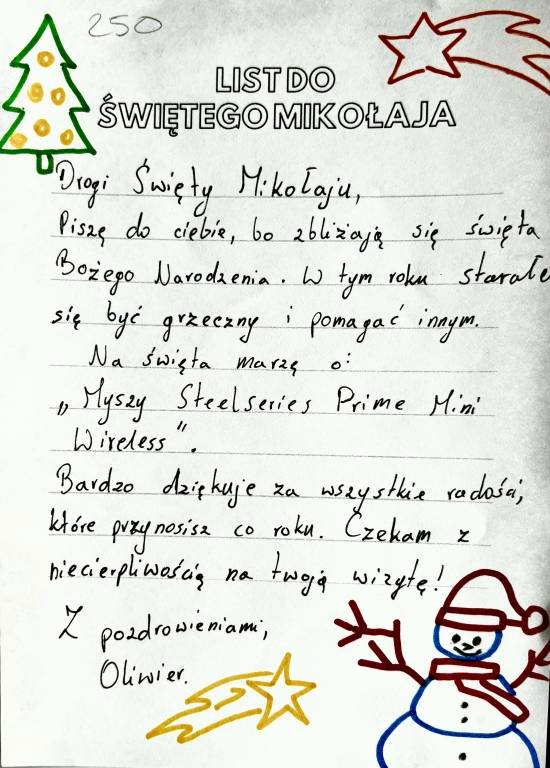 250
LIST DO
ŚWIĘTEGO MIKOŁAJA
Drogi Święty Mikołaju,
Piszę do ciebie, bo zbliżają się święta
Bożego Narodzenia. W tym roku starałe
się być grzeczny i pomagać innym.
Na święta marzę o:
„Myszy Steelseries Prime Mini
Wireless".
Bardzo dziękuje za wszystkie radości,
które przynosisz co roku. Czekam z
niecierpliwością na twoją wizytę!
Z pozdrowieniami,
Oliwier.